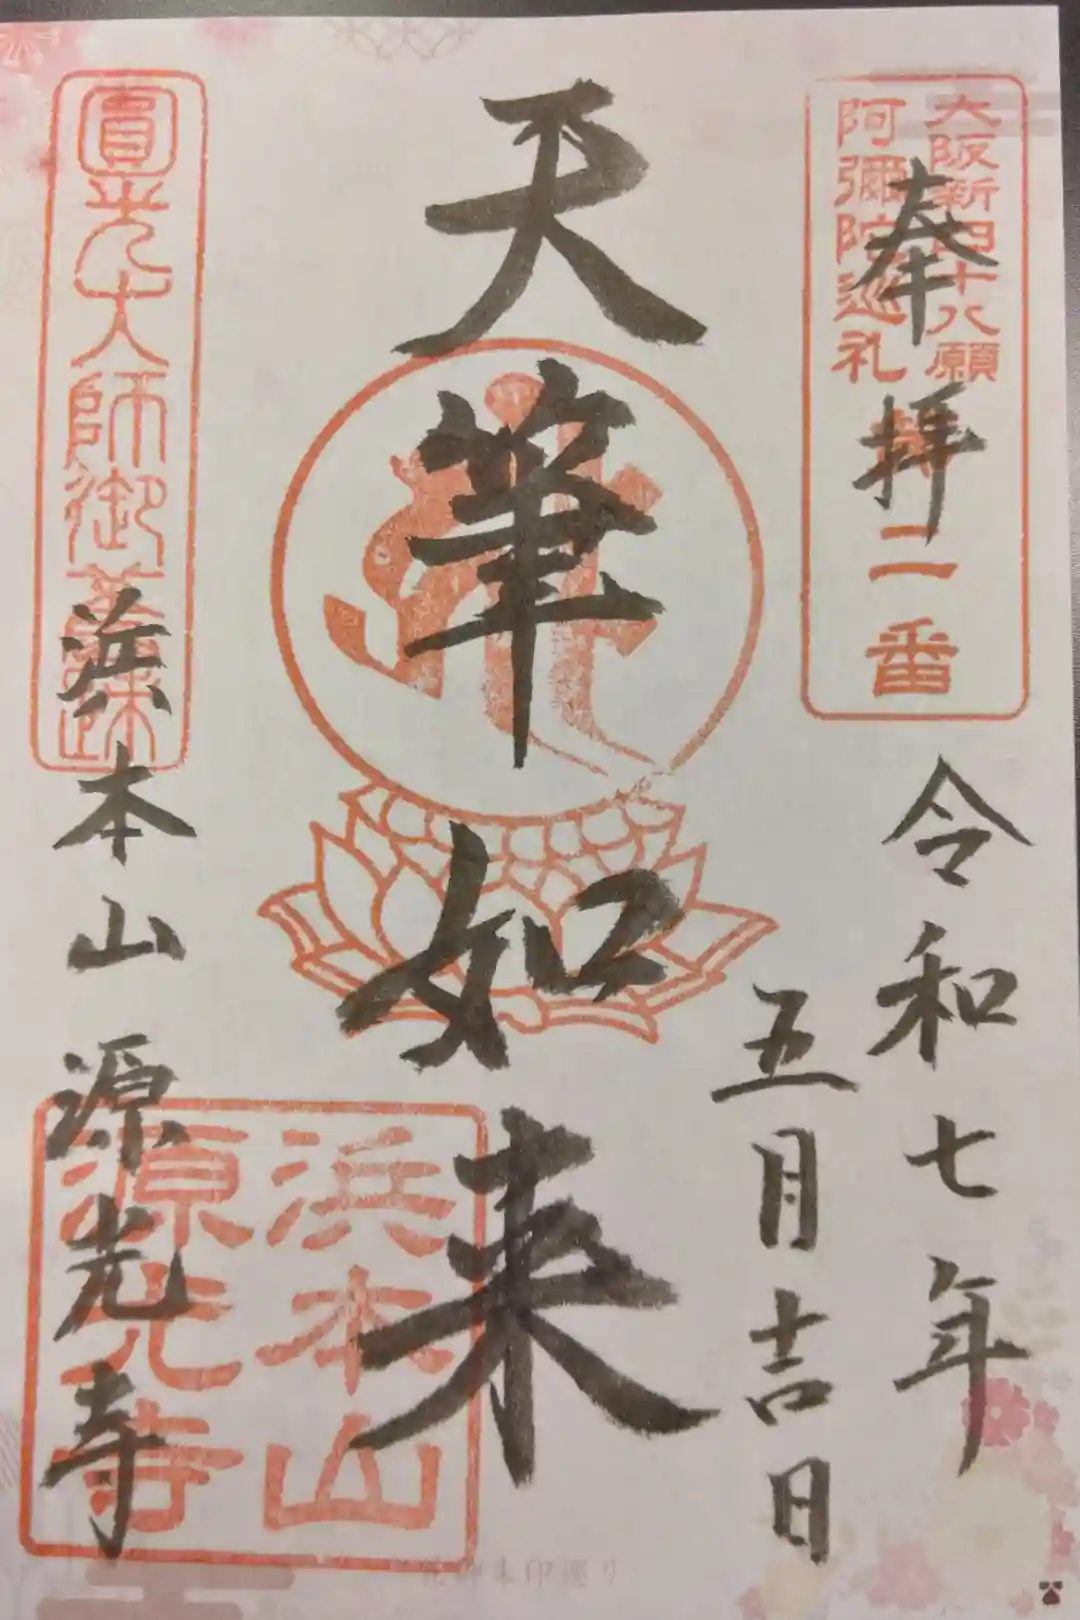 大阪新四十八願
阿彌陀巡礼
第二番
奉拝
令和七年
五月吉日
天筆如来
圓光大師御舊跡
浜本山源光寺
浜本山
源光寺